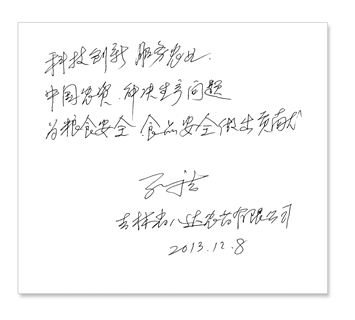 科技创新 服务农业
中国农资.解决生产问题
为粮食安全.食品安全做出贡献
吉林省八达农药有限公司
2013.12.8